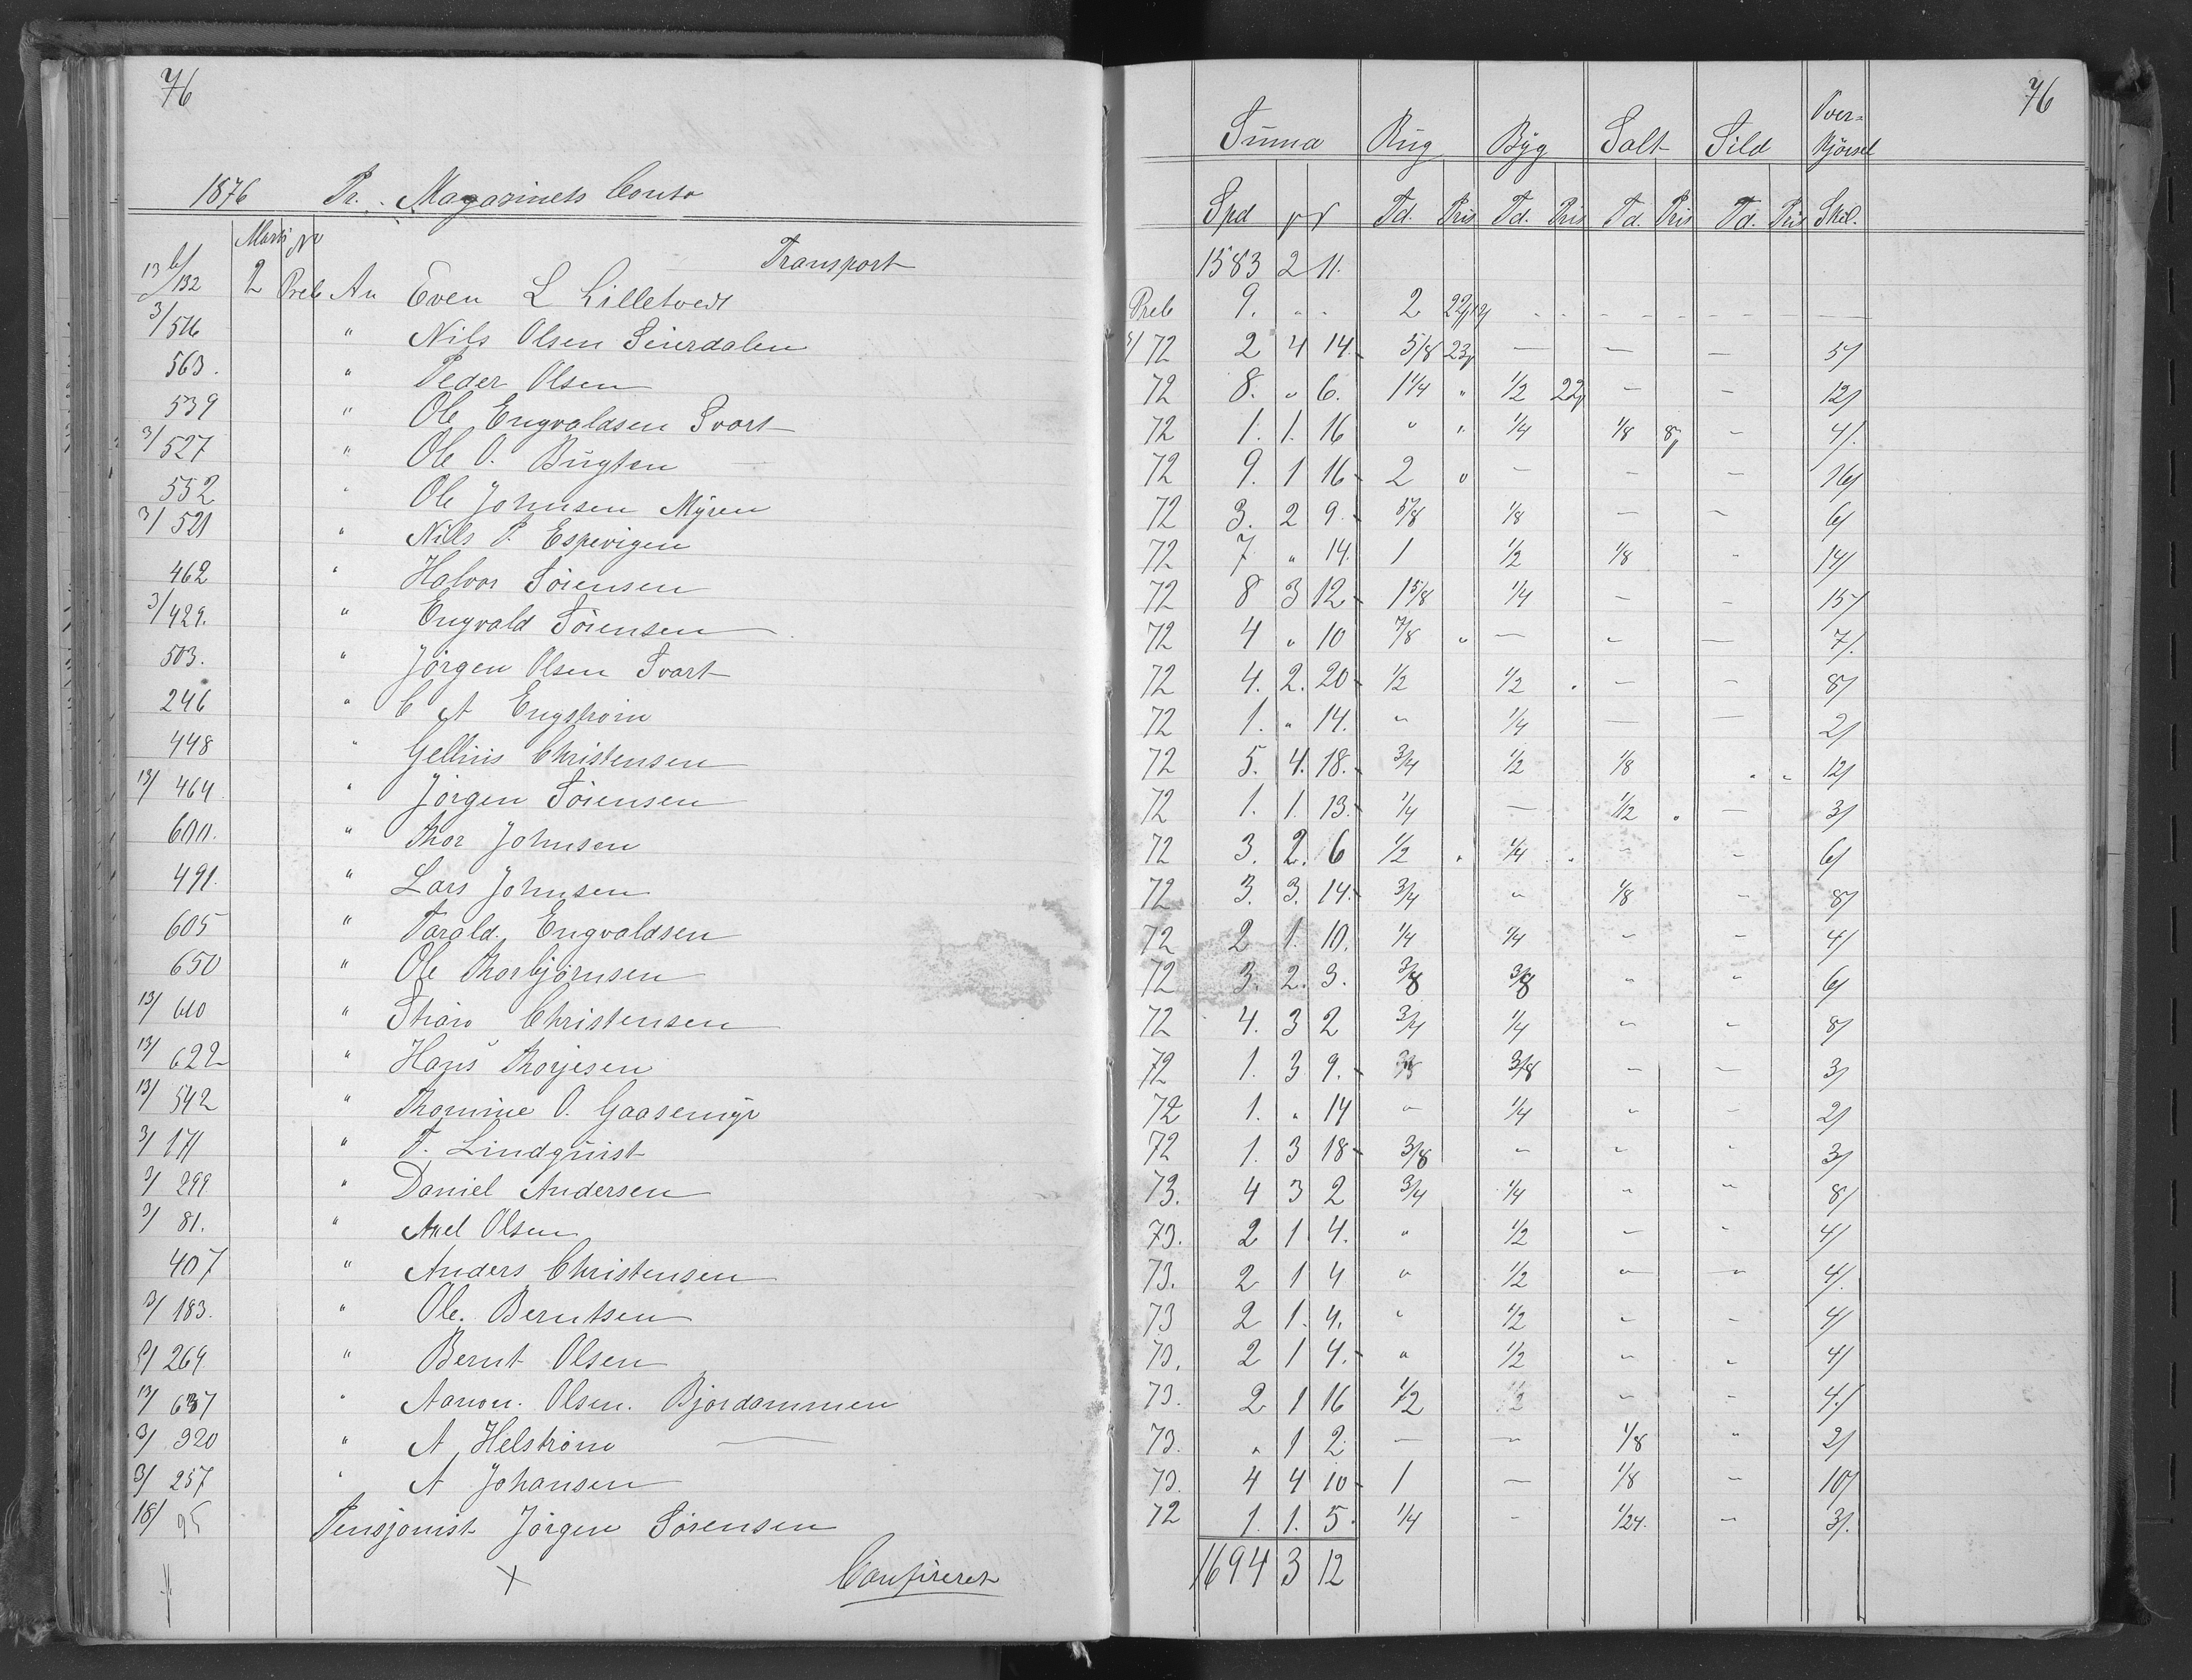 76
1876 Pr. Magasinets Conto
Mark No
Transport
13/6/132 2 Preb An Even L Lilletvedt
3/546 " Nils Olsen Seierdalen
563. " Peder Olsen
539 " Ole Engvaldsen Svart
3/527 " Ole O. Bugten
552 " Ole Johnsen Myren
3/521 " Nils P. Espevigen
462 " Halvor Sörensen
3/429. " Engvald Sörensen
503. " Jörgen Olsen Svart
246 " C A Engström
448 " Gellius Christensen
13/464. " Jörgen Sörensen
600. " Thor Johnsen
491. " Lars Johnsen
605 " Tarald. Engvaldsen
650 " Ole Thorbjörnsen
13/610 " Christensen
13/622 " Hans Thorjesen
13/542 " Thomine O. Gaasemyr
3/171 " T. Lindquist
3/299 " Daniel Andersen
3/81. " Axel Olsen
407 " Anders Christensen
3/183. " Ole. Berntsen
3/264 " Bernt Olsen
13/637 " Aanon. Olsen. Bjordammen
3/320 " A Helström
3/257 " A Johansen
18/95 Pensjonist Jörgen Sörensen
x Confireret
76
Suma Rug Byg Salt Sild Over=kjörsel
Spd Td. Pris Td. Pris Td. Pris Td. Pris Skil.
1583 2 11.
Preb 9. " " 2
72 2 4 14. 5/8 23 — — — 5/
72 8. " 6. 1 1/4 " 1/2 22 — — 12/
72 1. 1. 16 " " 1/4 1/8 8 — 4/.
72 9. 1 16 2 " — — — 16/
72 3. 2 9 5/8 1/8 — — 6/
72 7 " 14. 1 1/2 1/8 " 14/
72 8 3 12 1 5/8 1/4 — — 15/
72 4 " 10 7/8 " — — — 7/.
72 4. 2. 20 1/2 1/2 — — 8/
72 1. " 14. " 1/4 — — 2/
72 5. 4. 18. 3/4 1/2 1/8 " " 12/
72 1. 1. 13. 1/4 — 1/12 — 3/
72 3. 2. 6 1/2 " 1/4 " — — 6/
72 3. 3. 14. 3/4 " 1/8 — 8/
72 2 1. 10. 1/4 1/4 — — 4/
72 3. 2. 3. 3/8 3/8 " " 6/
72 4. 3 2 3/4 1/4 — — 8/
72 1. 3 9. 3/8 — — 3/
72 1. " 14 " 1/4 " — 2/
72 1. 3 18 3/8 — — — 3/
73. 4 3 2 3/4 1/4 " " 8/
73. 2 1 4. " 1/2 — — 4/
73. 2 1 4 " 1/2 — — 4/.
73 2 1. 4. " 1/2 — — 4/
73. 2 1 4. " 1/2 — — 4/
73. 2 1 16 1/2 — — 4/
73. " 1 2 — — 1/8 " 2/
73. 4 4 10 1 — 1/8 — 10/
72 1. 1. 5. 1/4 — 1/24. — 3/.
1694 3 12